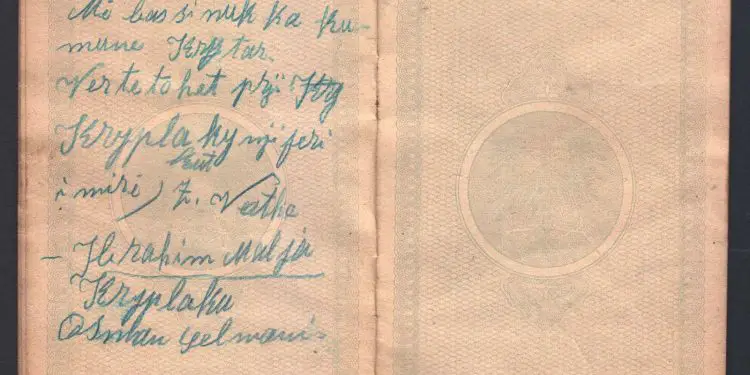 Mi bas si nuk ka ku-
mune Kryetar.
Vertetohet prji Kry
Kryplaky nji feri
kut
i mirë) Z. Vathe
- Ibrahim Malja
Kryplaku
Osman Yelmani-